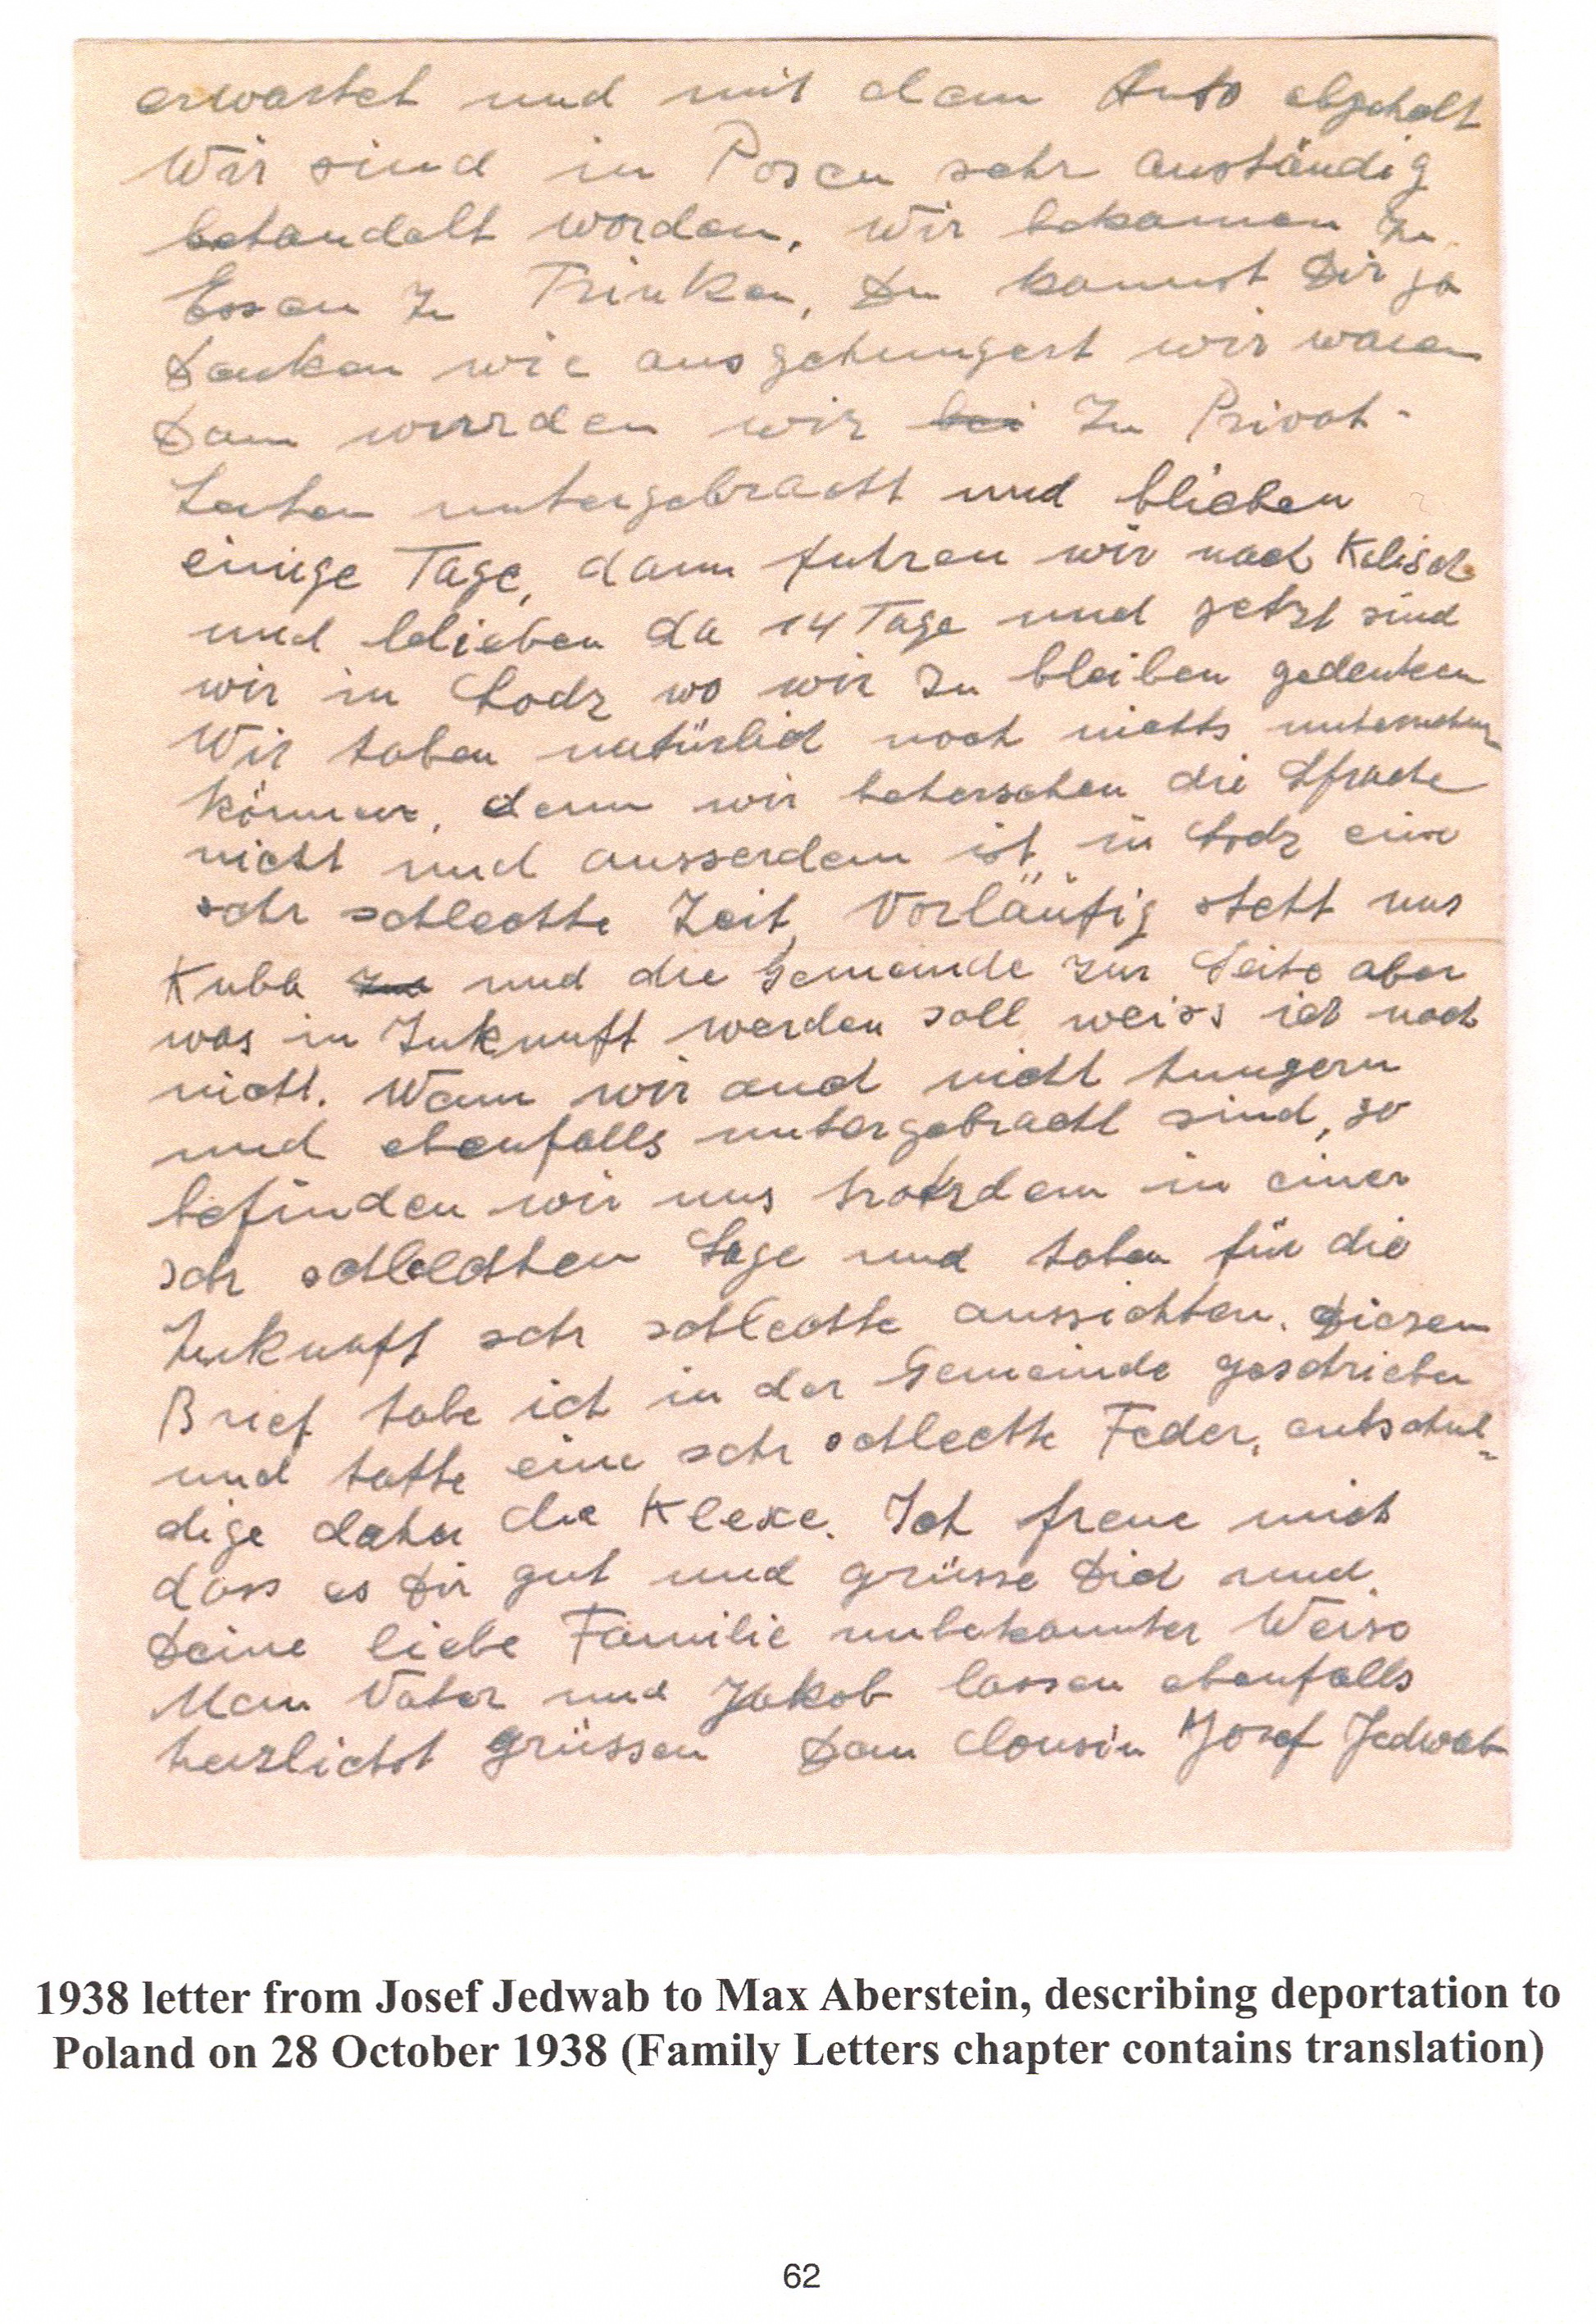 erwartet und mit dem Auto abgeholt
Wir sind in Posen sehr anständig
behandelt worden. Wir bekamen zu
Essen zu Trinken, Du kannst Dir ja
Denken wie ausgehungert wir waren
Dann wurrden wir bei zu Privat-
Leuten untergebracht und blieben
einige Tage, dann fuhren wir nach Kalisch
und blieben da 14 Tage und jetzt sind
wir in Lodz wo wir zu bleiben gedenken
Wir haben natürlich noch nichts unternehmen
können, denn wir beherschen die Sprache
nicht und ausserdem ist in Lodz eine
sehr schlechte Zeit, Vorläufig steht uns
Kuba und die Gemeinde zur Seite aber
was in Zukunft werden soll weiss ich noch
nicht. Wenn wir auch nicht hungern
und ebenfalls untergebracht sind, so
befinden wir uns trotzdem in einer
sehr schlechten Lage und haben für die
Zukunft sehr schlechte aussichten. Diesen
Brief habe ich in der Gemeinde geschrieben
und hatte eine sehr schlechte Feder, entschul-
dige daher die Klexe. Ich freue mich
dass es Dir gut und grüsse Dich und
Deine liebe Familie unbekannter Weise
Mein Vater und Jakob lassen ebenfalls
herzlichst grüssen Dein Cousin Josef Jedwab
1938 letter from Josef Jedwab to Max Aberstein, describing deportation to
Poland on 28 October 1938 (Family Letters chapter contains translation)
62